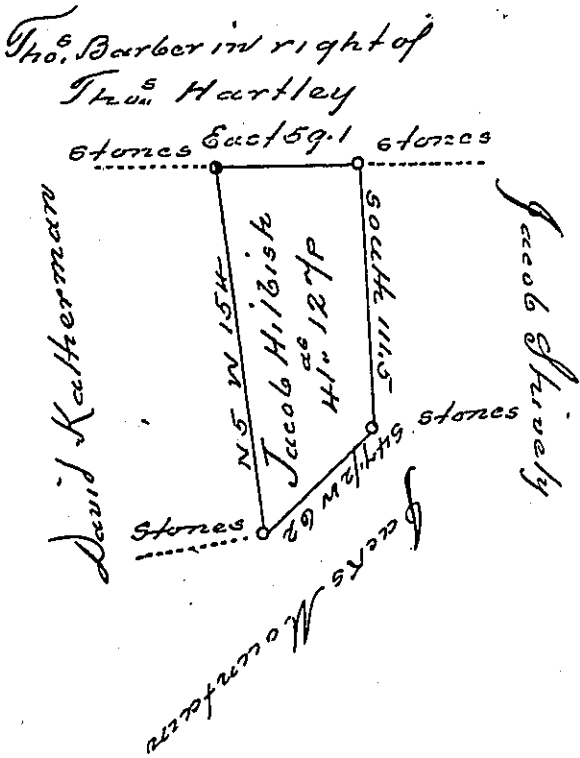 Thos. Barber in right of
Thos. Hartley
stones East 59.1 stones
David Katherman
N5 W 154
Jacob Hilbish
41as 127p
South 111.5
Jacob Shively
stones
S47 1/2 W 62
stones
Jacks Mountain